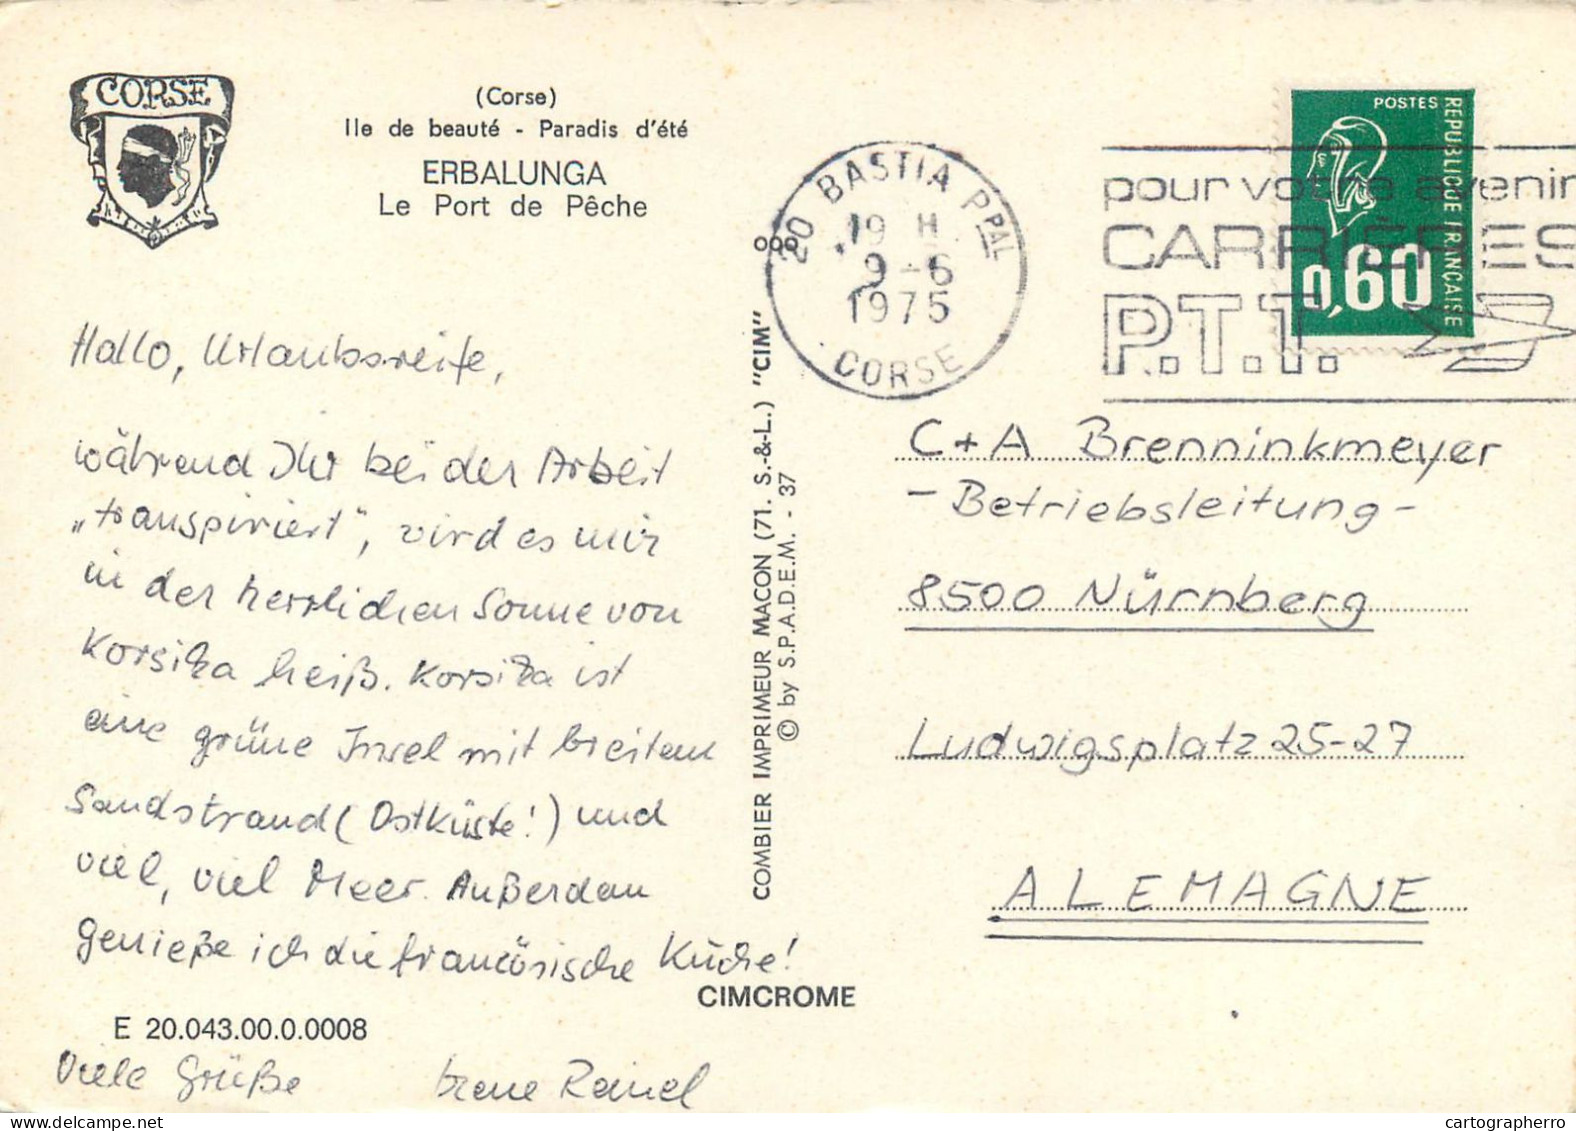 CORSE
(Corse)
Ile de beauté - Paradis d'été
ERBALUNGA
Le Port de Pêche
Hallo, Urlaubsreife,
während Ihr bei der Arbeit
„transpiriert", wird es mir
in der herrlichen Sonne von
Korsika heiß. Korsika ist
eine grüne Insel mit breitem
Sandstrand (Ostküste!) und
viel, viel Meer. Außerdem
genieße ich die französische Küche!
E 20.043.00.0.0008
Viele Grüße
Irene
CIMCROME
COMBIER IMPRIMEUR MACON (71. S.-&-L.) "CIM"
© by S.P.A.D.E.M. - 37
20 BASTIA PPAL
19 H
9-6
1975
CORSE
pour votre avenir
CARRIÈRES
P.T.T.
POSTES
REPUBLIQUE FRANÇAISE
0,60
C+A Brenninkmeyer
- Betriebsleitung -
8500 Nürnberg
Ludwigsplatz 25-27
ALEMAGNE
cartographerro